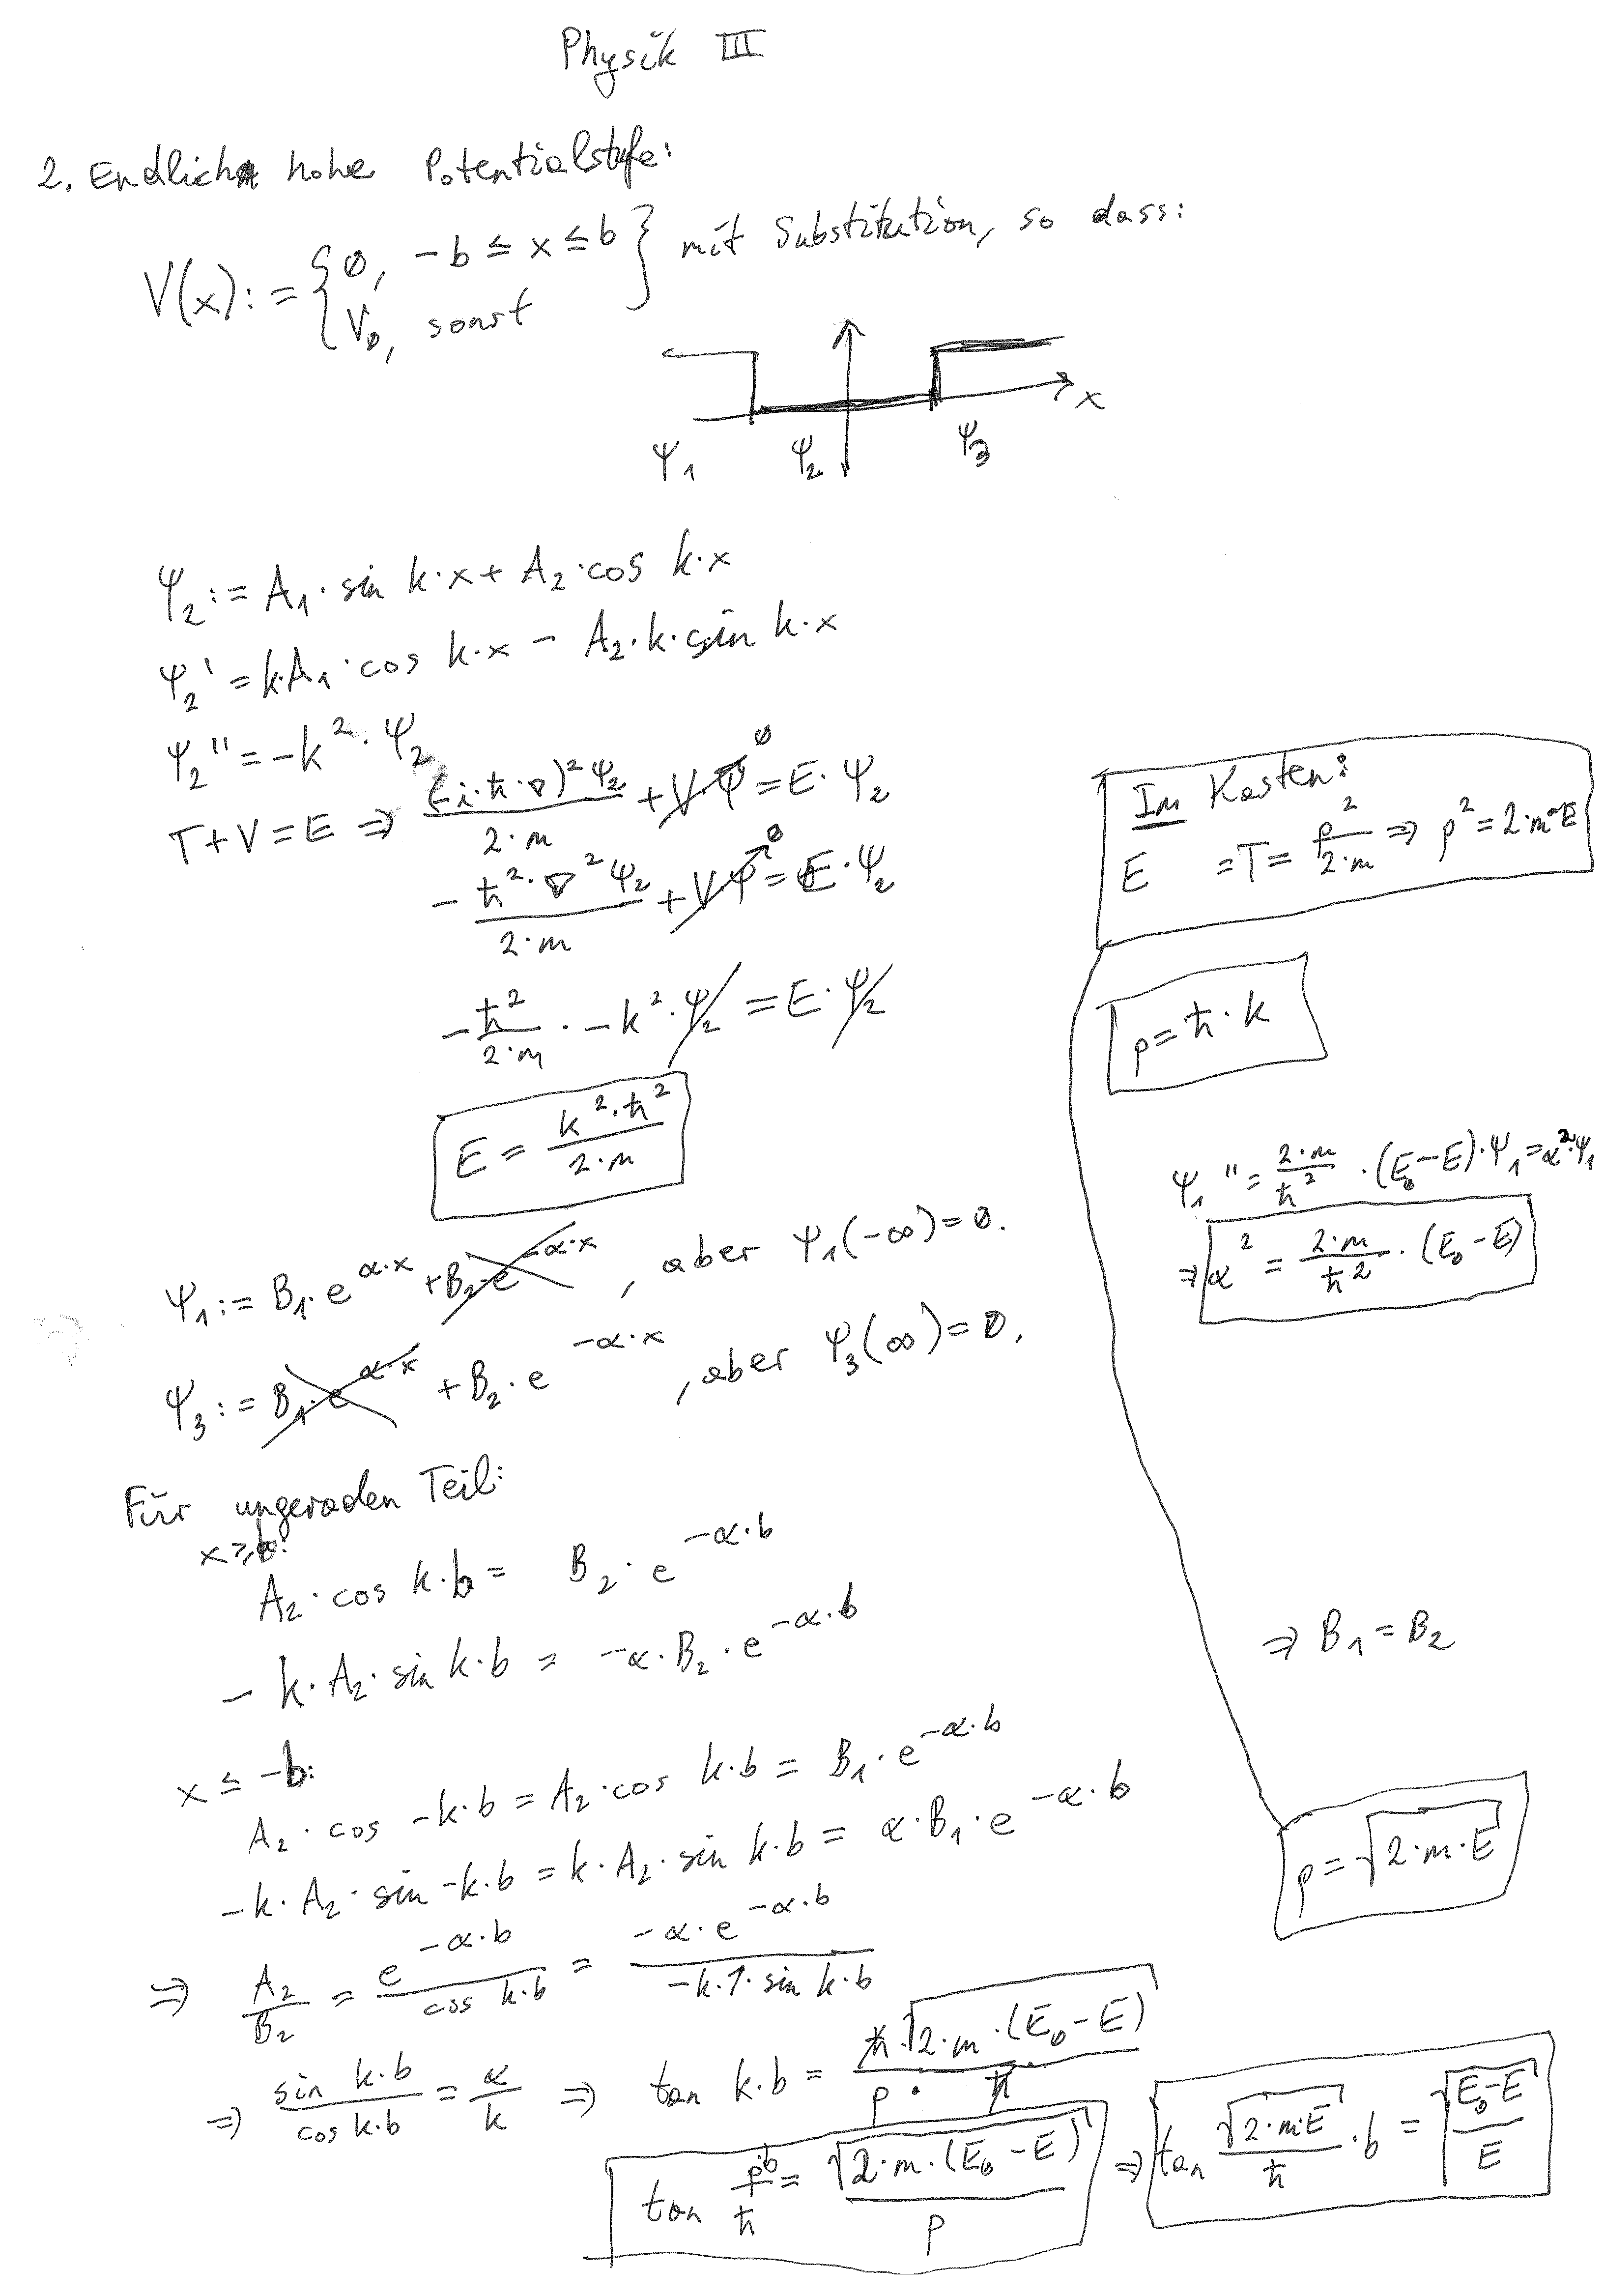 Physik III
2. Endlich hohe Potentialstufe:
V(x) := { 0, -b ≤ x ≤ b } mit Substitution, so dass:
V₀, sonst
x
ψ₁ ψ₂ ψ₃
ψ₂ := A₁ · sin k·x + A₂ · cos k·x
ψ₂' = k·A₁ · cos k·x - A₂·k·sin k·x
ψ₂'' = -k² · ψ₂
T+V=E ⇒ (-i·ħ·∇)² ψ₂ / 2·m + V·ψ = E · ψ₂
0
-ħ²·∇² ψ₂ / 2·m + V·ψ = E · ψ₂
0
-ħ² / 2·m · -k² · ψ₂ = E · ψ₂
E = k²·ħ² / 2·m
Im Kasten:
E = T = p² / 2·m ⇒ p² = 2·m·E
p = ħ · k
ψ₁'' = 2·m / ħ² · (E₀-E) · ψ₁ = α²·ψ₁
⇒ α² = 2·m / ħ² · (E₀-E)
ψ₁ := B₁·e^(α·x) + B₂·e^(-α·x), aber ψ₁(-∞) = 0.
ψ₃ := B₁·e^(α·x) + B₂·e^(-α·x), aber ψ₃(∞) = 0.
Für ungeraden Teil:
x ≥ b:
A₂ · cos k·b = B₂ · e^(-α·b)
- k·A₂· sin k·b = -α·B₂·e^(-α·b)
⇒ B₁ = B₂
x ≤ -b:
A₂ · cos -k·b = A₂ · cos k·b = B₁·e^(-α·b)
-k·A₂· sin -k·b = k·A₂· sin k·b = α·B₁·e^(-α·b)
p = √(2·m·E)
⇒ A₂ / B₂ = e^(-α·b) / cos k·b = -α·e^(-α·b) / -k·1·sin k·b
⇒ sin k·b / cos k·b = α / k ⇒ tan k·b = ħ·√(2·m·(E₀-E)) / p·ħ
tan p·b / ħ = √(2·m·(E₀-E)) / p ⇒ tan √(2·m·E) / ħ · b = √((E₀-E) / E)